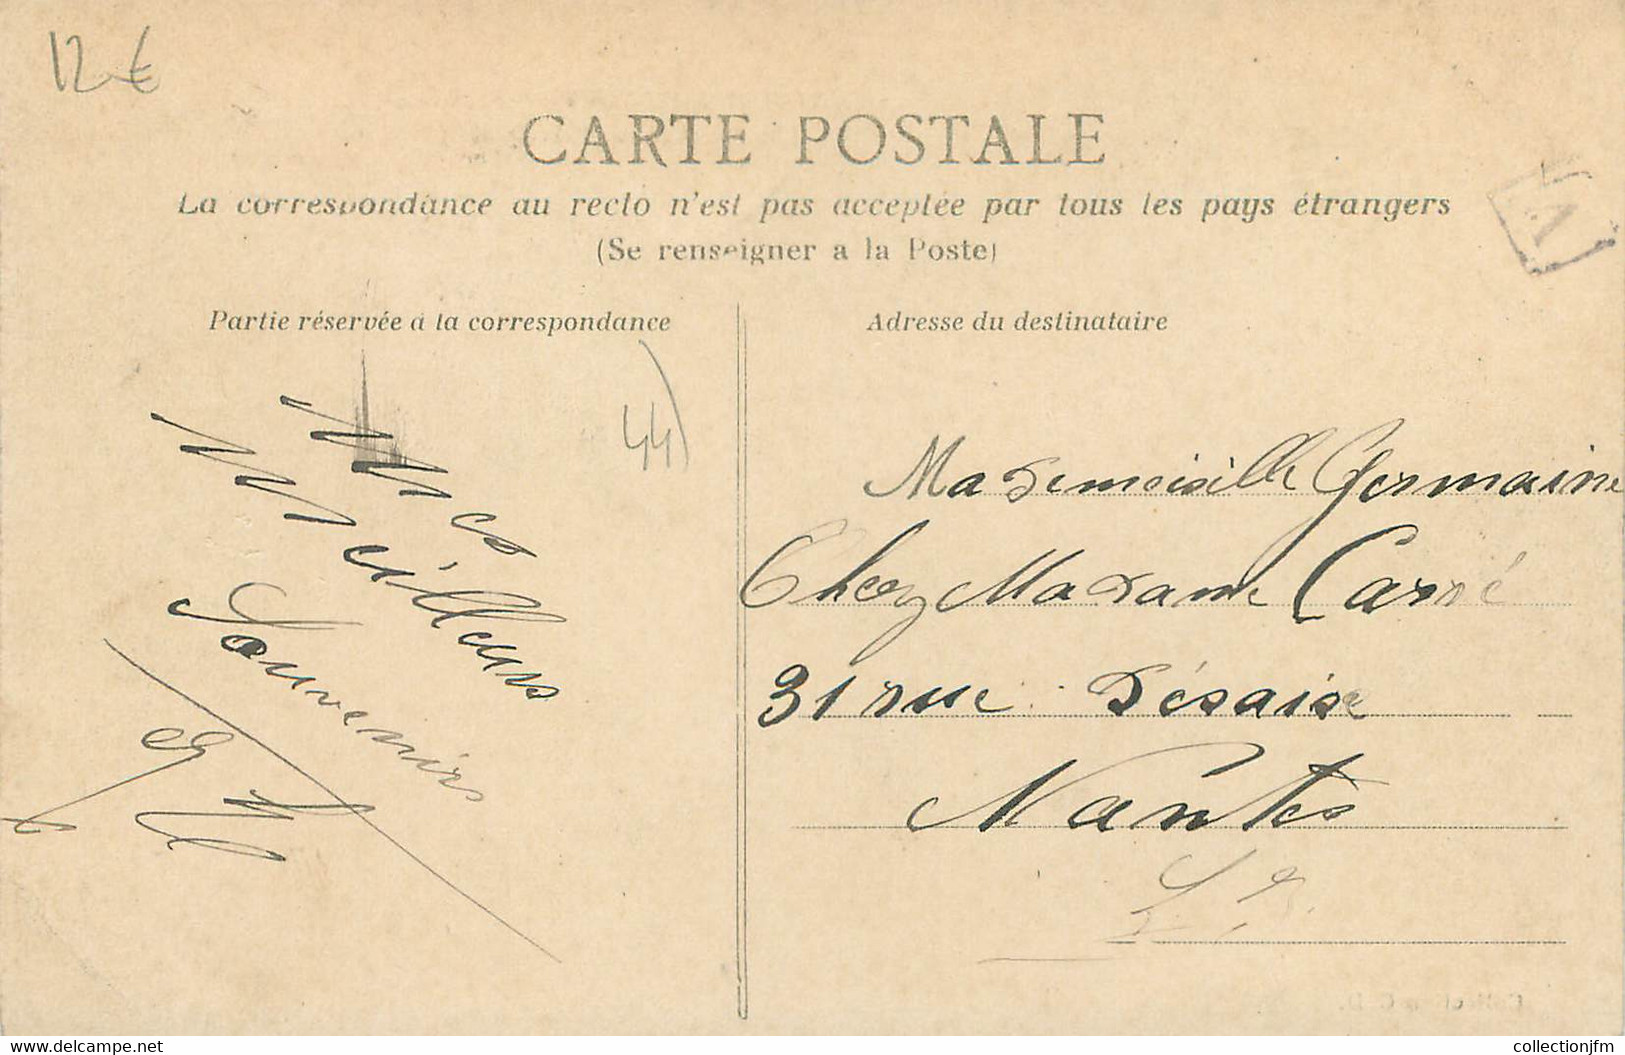 12 €
CARTE POSTALE
La correspondance au recto n'est pas acceptée par tous les pays étrangers
(Se renseigner a la Poste)
A
Partie réservée à la correspondance
Adresse du destinataire
44)
Mes
Meilleurs
Souvenirs
Mademoiselle Germaine
Chez Madame Carré
31 rue Désaise
Nantes
delcampe.net
collectionjfm